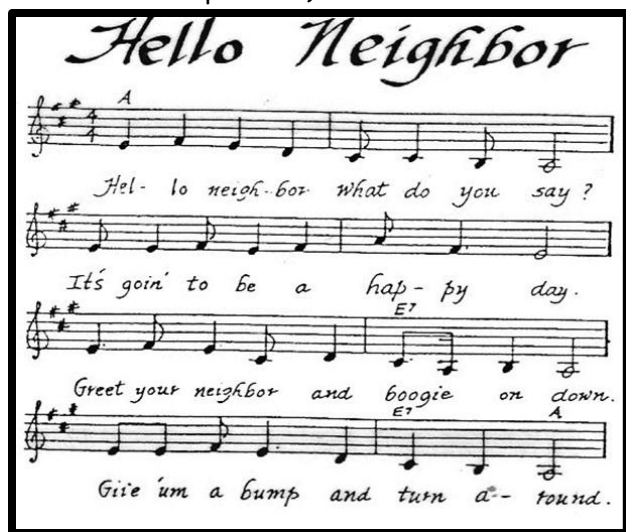 Hello Neighbor
A
4
4
Hel- lo neigh-bor what do you say?
It's goin' to be a hap-py day.
E7
Greet your neighbor and boogie on down.
E7 A
Giie 'um a bump and turn a-- round.